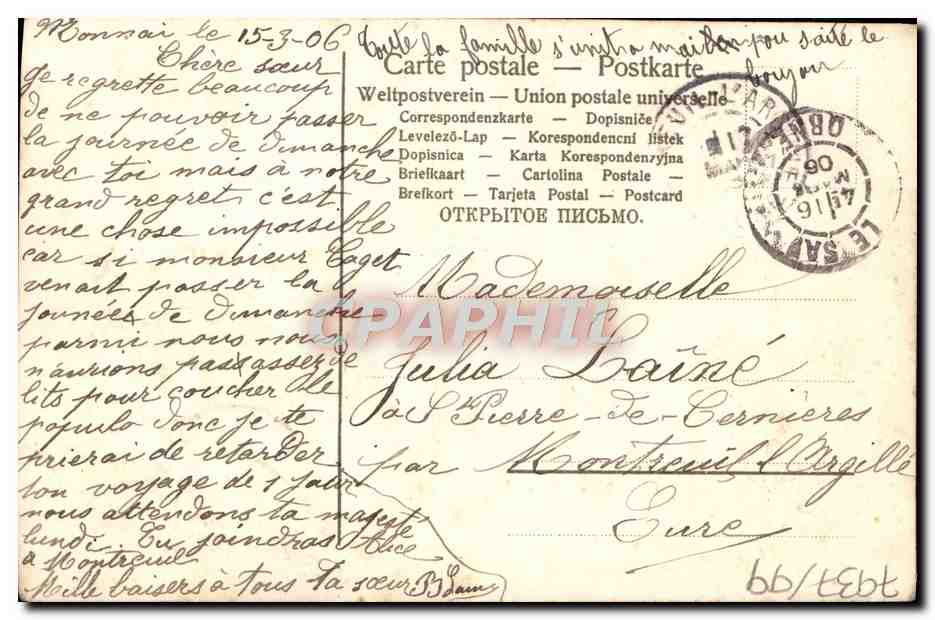 Monnai le 15-3-06
Chère sœur
Je regrette beaucoup
de ne pouvoir passer
la journée de dimanche
avec toi mais à notre
grand regret c'est
une chose impossible
car si monsieur Taget
venait passer la
journée de dimanche
parmi nous nous
n'aurions pas assez de
lits pour coucher le
populo donc je te
prierai de retarder
ton voyage de 1 jour
nous attendons ta majesté
lundi. Tu joindras Alice
à Montreuil
Mille baisers à tous Ta sœur
Toute la famille s'unit a moi pou saité le
bonjour
Carte postale — Postkarte
Weltpostverein — Union postale universelle
Correspondenzkarte — Dopisniče
Levelező-Lap — Korespondencni listek
Dopisnica — Karta Korespondenzyjna
Briefkaart — Cartolina Postale —
Brefkort — Tarjeta Postal — Postcard
ОТКРЫТОЕ ПИСЬМО.
LE SAP
16
MARS
06
Mademoiselle
Julia Laîné
à St Pierre-de-Cernières
par Montreuil l'Argillé
Eure
CPAPHIL
7937/99